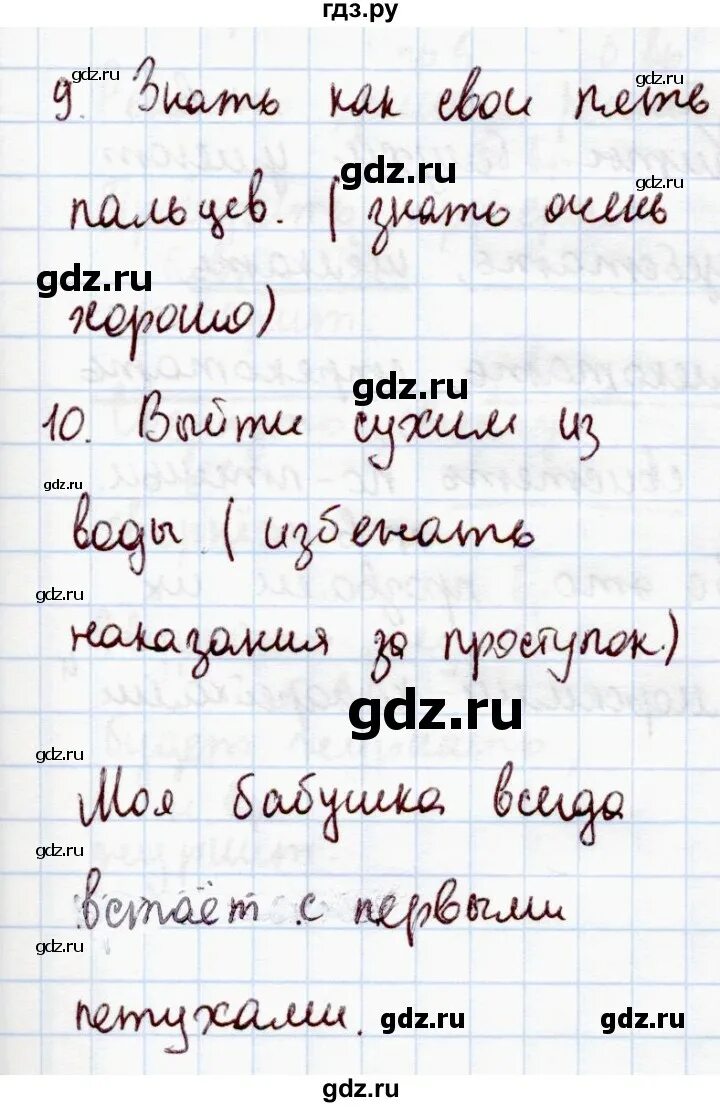 гдз.ру
gdz.ru gdz.ru
9. Знать как свои пять
gdz.ru gdz.ru
пальцев. (знать очень
gdz.ru
хорошо)
gdz.ru
10. Выйти сухим из
gdz.ru
воды (избежать
gdz.ru
наказания за проступок.)
gdz.ru
gdz.ru
Моя бабушка всегда
gdz.ru
встаёт с первыми
gdz.ru
петухами. gdz.ru gdz.ru
gdz.ru